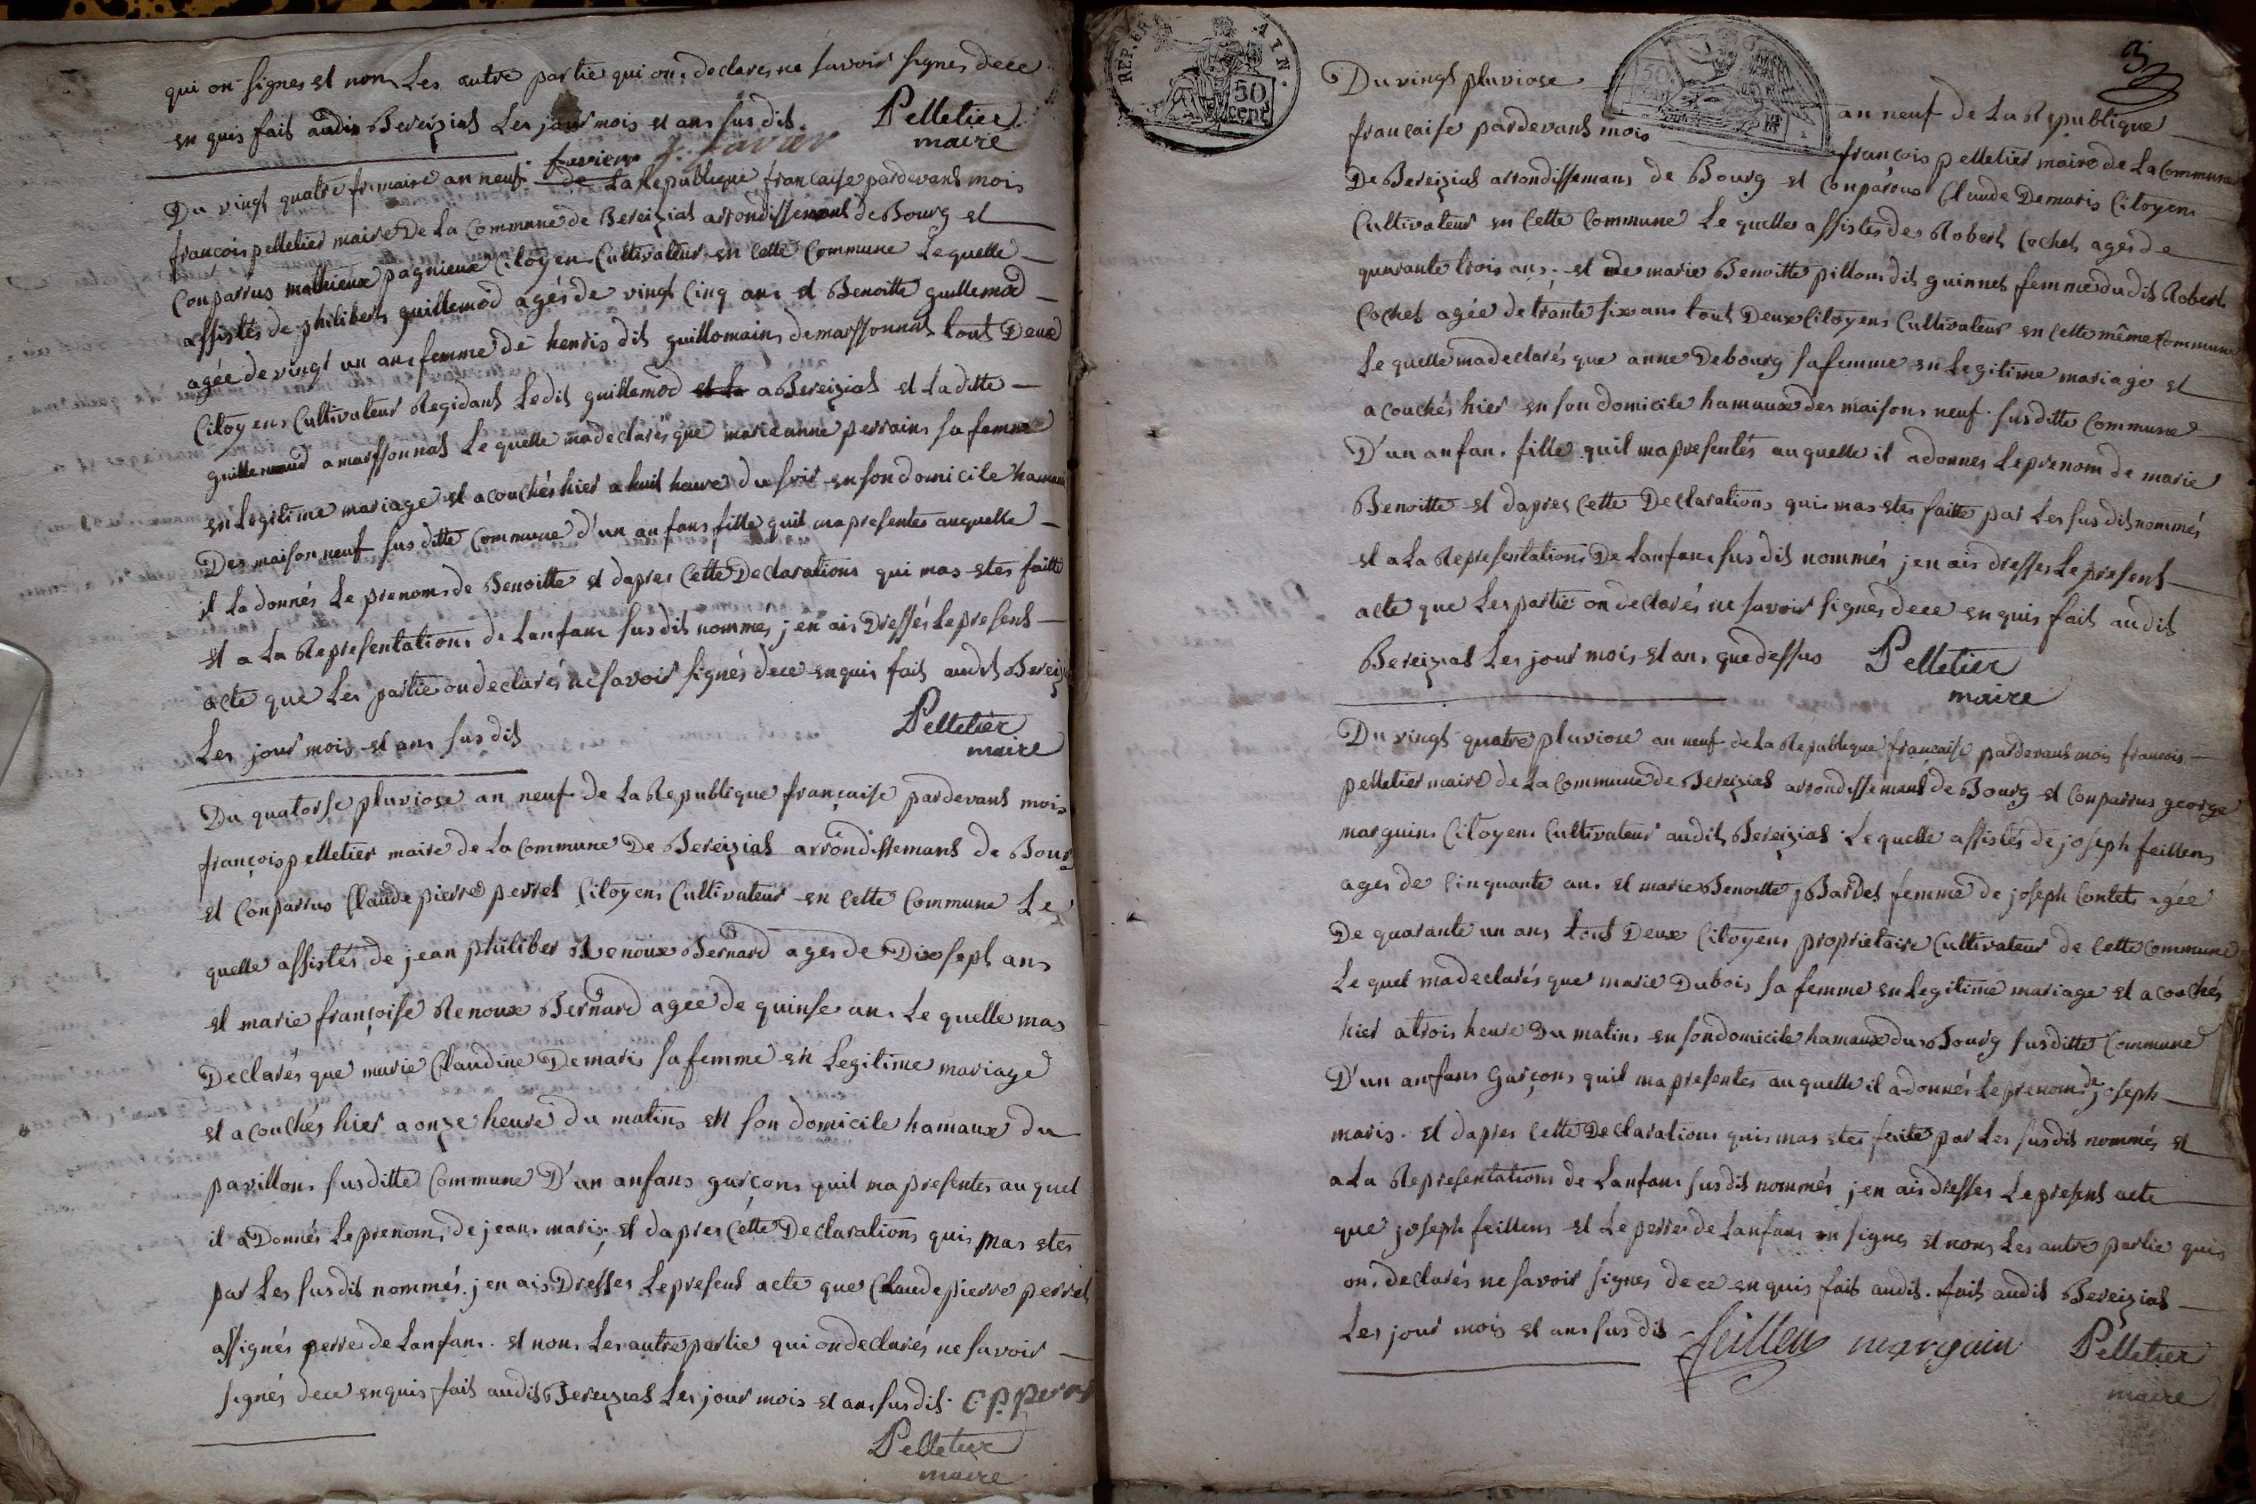 qui on signes et non Les autre partie qui on declares ne savoir signes dece
en quis fait audit Bereiziat Les jour mois et ans sus dit. Pelletier
maire
favier J. favier
Du vingt quatre frimaire an neuf de La Republique française pardevant mois
françois pelletier maire De La Commune de Bereiziat arrondissemant de Bourg et
Conparrus mathieux pagnieux Citoyen Cultivateur en Cette Commune Lequelle
assistés de philibert guillemod agés de vingt Cinq ans et Benoitte guillemod
agée de vingt un ans femme de henris dit guillomain demarsonnat tout Deux
Citoyens Cultivateur Regidant Ledit guillemod et La a Bereiziat et La ditte
guillemaud a marssonnat Le quelle madeclarés que marieanne perrain sa femme
en Legitime mariage et acouchés hier a huit heure du soir en son domicile hamaux
Des maison neuf sus ditte Commune d'un anfans fille quil mapresentes auquelle
il La donnés Le prenom de Benoitte et dapres Cette Declarations qui mas etes faitte
et a La Representations de Lanfans sus dit nommés jen ais Dressés Lepresent
acte que Les partie ondeclarés ne savoir signés dece enquis fait audit Bereiz
Les jour mois et ans sus dit Pelletier
maire
Du quatorse pluviose an neuf de La Republique française pardevant mois
françois pelletier maire de La Commune De Bereiziat arrondissemant de Bourg
et Conparrus Claude pierre perret Citoyens Cultivateur en Cette Commune Le
quelle assistés de jean philiber Renoux Bernard ages de Dix sept ans
et marie françoise Renoux Bernard agee de quinse ans Le quelle mas
Declarés que marie Claudine Demaris sa femme en Legitime mariage
et acouchés hier a onze heure du matins en son domicile hamaux du
pavillons susditte Commune D'un anfans garçons quil mapresentes auquel
il aDonnés Leprenom de jean maris, et dapres Cette Declarations quis mas etes
par Les susdit nommés. jen ais Dresses Lepresent acte que Claude pierre perret
assignés perre de Lanfans. et nons Les autre partie qui ondeclarés ne savoir
signés dece enquis fait audit Bereiziat Les jour mois et ans susdit. C. P. Perret
Pelletier
maire
REP. FRA 50 cent
3
Du vingt pluviose an neuf de La Republique
française pardevant mois françois pelletier maire de La Commune
De Bereiziat arrondissemans de Bourg et Conparus Claude Demaris Citoyens
Cultivateur en Cette Commune Le quelles assistés de Robert Cochet agés de
quarante trois ans. et de marie Benoitte pillon dit guinnet femme dudit Robert
Cochet agée de trante six ans tout Deux Citoyens Cultivateur en Cette même Commune
Le quelle madeclarés que anne Debourg sa femme en Legitime mariage et
acouchés hier en son domicile hamaux des maisons neuf. susditte Commune
D'un anfan. fille quil mapresentés auquelle il adonnes Leprenom de marie
Benoitte et dapres Cette Declarations quis mas etes faitte par Les sus dit nommés
et a La Representations De Lanfans sus dit nommés jen ais dresses Le present
acte que Les partie on declarés ne savoir signés dece enquis fait audit
Bereiziat Les jour mois et ans que dessus Pelletier
maire
Du vingt quatre pluviose an neuf de La Republique française pardevant mois francois
pelletier maire de La Commune de Bereiziat arrondissemant de Bourg et Conparrus george
marguins Citoyens Cultivateur audit Bereiziat. Le quelle assistés de joseph feillens
ages de Cinquante ans. et marie Benoitte jBardet femme de joseph Contet agée
De quarante un ans tout Deux Citoyens proprietaire Cultivateur de Cette Commune
Le quel madeclarés que marie Dubois sa femme en Legitime mariage et acouchés
hier atrois heure Du matins en sondomicile hamaux du Bourg susditte Commune
D'un anfans Garçons quil mapresentes auquelle il adonnés Le prenom de joseph
maris. et dapres Cette Declarations quis mas etes faite par Les susdit nommés et
a La Representations de Lanfans sus dit nommés jen ais dresses Le present acte
que joseph feillens et Le perre de Lanfans on signes et nons Les autre partie quis
on. declarés ne savoir signes dece enquis fait audit. fait audit Bereiziat
Les jour mois et ans sus dit feillens marguin Pelletier
maire